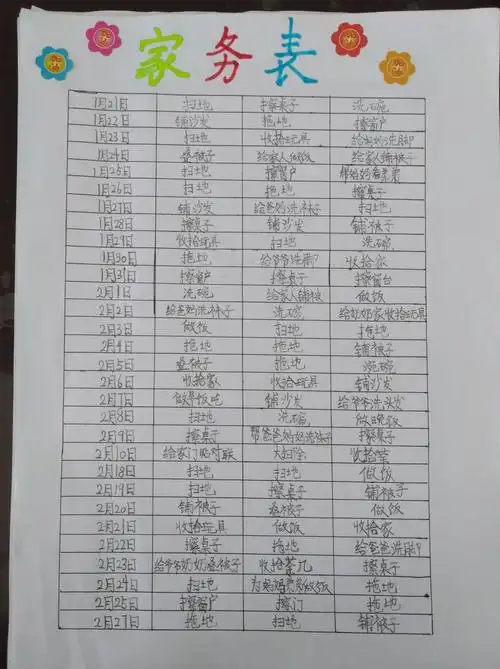 家务表
1月21日 扫地 擦桌子 洗碗
1月22日 铺沙发 拖地 擦窗户
1月23日 扫地 收拾玩具 给爸妈洗脚
1月24日 叠被子 给家人做饭 给家人铺被子
1月25日 扫地 擦窗户 帮妈妈看弟弟
1月26日 扫地 拖地 擦桌子
1月27日 铺沙发 给爸妈洗袜子 扫地
1月28日 擦桌子 铺沙发 铺被子
1月29日 收拾玩具 扫地 洗碗
1月30日 拖地 给爷爷洗脚 收拾家
1月31日 擦窗户 擦桌子 擦窗台
2月1日 洗碗 给家人铺被 做饭
2月2日 给爸妈洗袜子 洗碗 给奶奶家收拾玩具
2月3日 做饭 扫地 拖地
2月4日 拖地 拖地 铺被子
2月5日 叠被子 拖地 洗碗
2月6日 收拾家 收拾玩具 铺沙发
2月7日 做早饭吃 铺沙发 给爷爷洗头发
2月8日 扫地 洗碗 做晚饭
2月9日 擦桌子 帮爸爸妈妈洗袜子 擦桌子
2月10日 给家门贴对联 大扫除 收拾家
2月18日 扫地 扫地 做饭
2月19日 扫地 擦桌子 铺被子
2月20日 铺被子 叠被子 做饭
2月21日 收拾玩具 做饭 收拾家
2月22日 擦桌子 拖地 给爸爸洗脚
2月23日 给爷爷奶奶叠被子 收拾茶几 擦桌子
2月24日 扫地 为妈妈弟弟做饭 拖地
2月25日 擦窗户 擦门 拖地
2月27日 拖地 扫地 铺被子